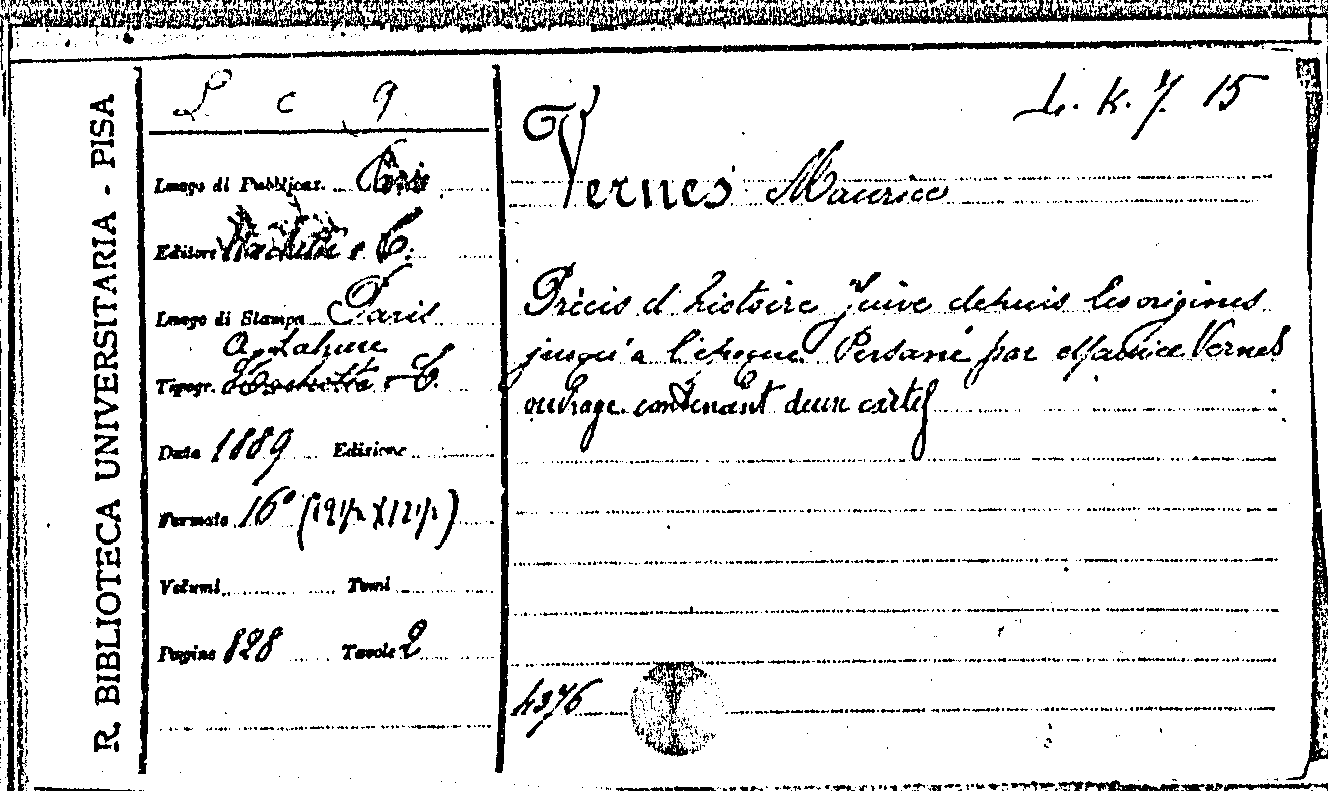 R. BIBLIOTECA UNIVERSITARIA - PISA
L c 9
Luogo di Pubblicaz. Paris
Editore Hachette e C.
Luogo di Stampa Paris
A. Lahure
Tipogr. Hachette e C.
Data 1889 Edizione
Formato 16° (19 1/2 X 12 1/2)
Volumi Tomi
Pagine 828 Tavole 2
L. K. 7. 15
Vernes Maurice
Précis d'histoire Juive depuis les origines
jusqu'à l'époque Persane par Maurice Vernes
ouvrage contenant deux cartes
4376